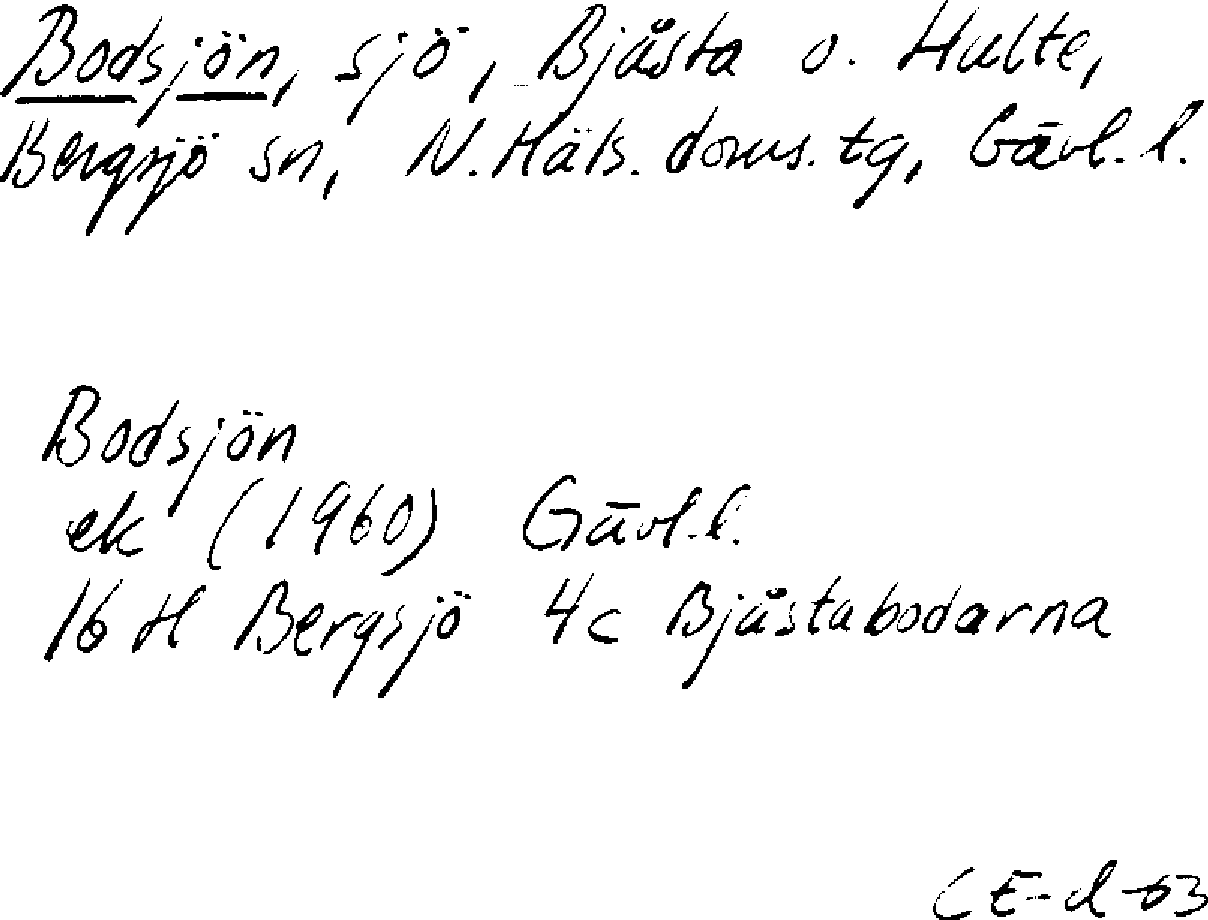 Bodsjön, sjö, Bjåsta o. Hulte,
Bergsjö sn, N. Häls. doms. tg, Gävl. l.
Bodsjön
ek (1960) Gävl. l.
16 H Bergsjö 4c Bjåstabodarna
CE-d-63